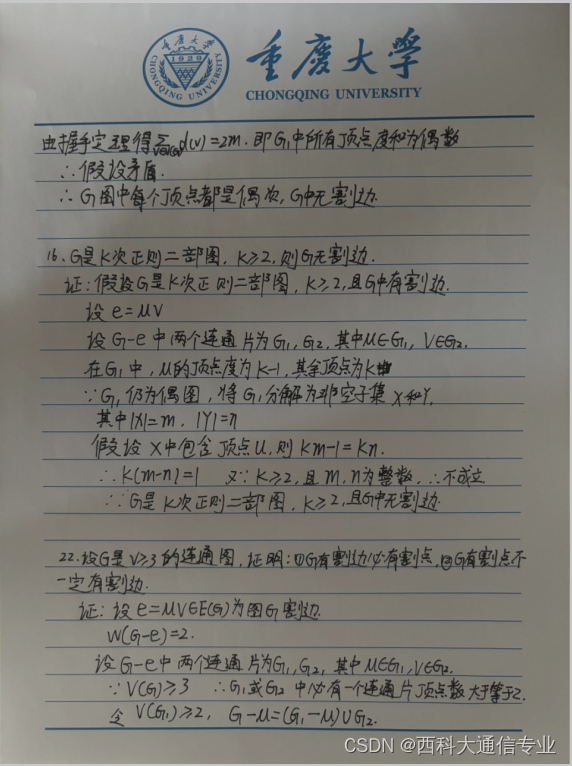 重庆大学
CHONGQING UNIVERSITY
重庆大学
1929
CHONGQING UNIVERSITY
由握手定理得∑d(v)=2m. 即G₁中所有顶点度和为偶数
∴假设矛盾.
∴G图中每个顶点都是偶次, G中无割边.
16. G是K次正则二部图, K≥2, 则G无割边.
证: 假设G是K次正则二部图, K≥2, 且G中有割边.
设 e=μV
设 G-e 中两个连通片为G₁, G₂, 其中μ∈G₁, V∈G₂,
在G₁中, μ的顶点度为K-1, 其余顶点为K
∵G₁仍为偶图, 将G₁分解为非空子集 X和Y,
其中|X|=m, |Y|=n
假设 X中包含顶点u, 则 Km-1=Kn.
∴K(m-n)=1 又∵K≥2, 且m, n为整数, ∴不成立
∴G是K次正则二部图, K≥2, 且G中无割边.
22. 设G是V≥3的连通图, 证明: ①G有割边必有割点, ②G有割点不
一定有割边.
证: 设 e=μV∈E(G)为图G割边.
W(G-e)=2.
设G-e中两个连通片为G₁, G₂, 其中μ∈G₁, V∈G₂.
∵V(G)≥3 ∴G₁或G₂中必有一个连通片顶点数大于等于2.
令 V(G₁)≥2, G-μ=(G₁-μ)∪G₂.
CSDN @西科大通信专业